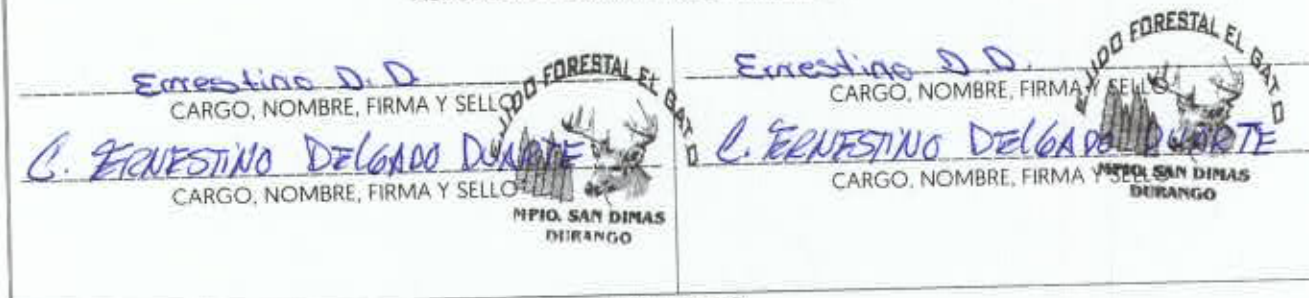 Ernestino D. D.
CARGO, NOMBRE, FIRMA Y SELLO
C. ERNESTINO DELGADO DUARTE
CARGO, NOMBRE, FIRMA Y SELLO
EJIDO FORESTAL EL GATO
MPIO. SAN DIMAS
DURANGO
Ernestino D. D.
CARGO, NOMBRE, FIRMA Y SELLO
C. ERNESTINO DELGADO DUARTE
CARGO, NOMBRE, FIRMA Y SELLO
EJIDO FORESTAL EL GATO
MPIO. SAN DIMAS
DURANGO